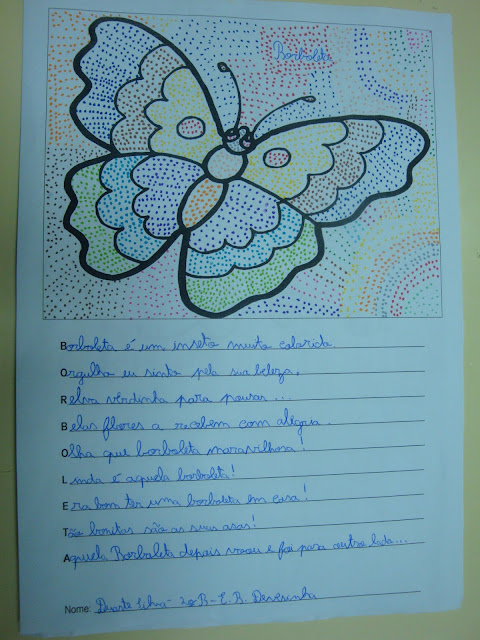 Borboleta
Borboleta é um inseto muito colorida.
Orgulho eu sinto pela sua beleza.
Relva verdinha para pousar...
Belas flores a recebem com alegria.
Olha que borboleta maravilhosa!
Linda é aquela borboleta!
Era bom ter uma borboleta em casa!
Tão bonitas são as suas asas!
Aquela Borboleta depois voou e foi para outro lado...
Nome: Duarte Silva - 2oB - E.B. Devesinha